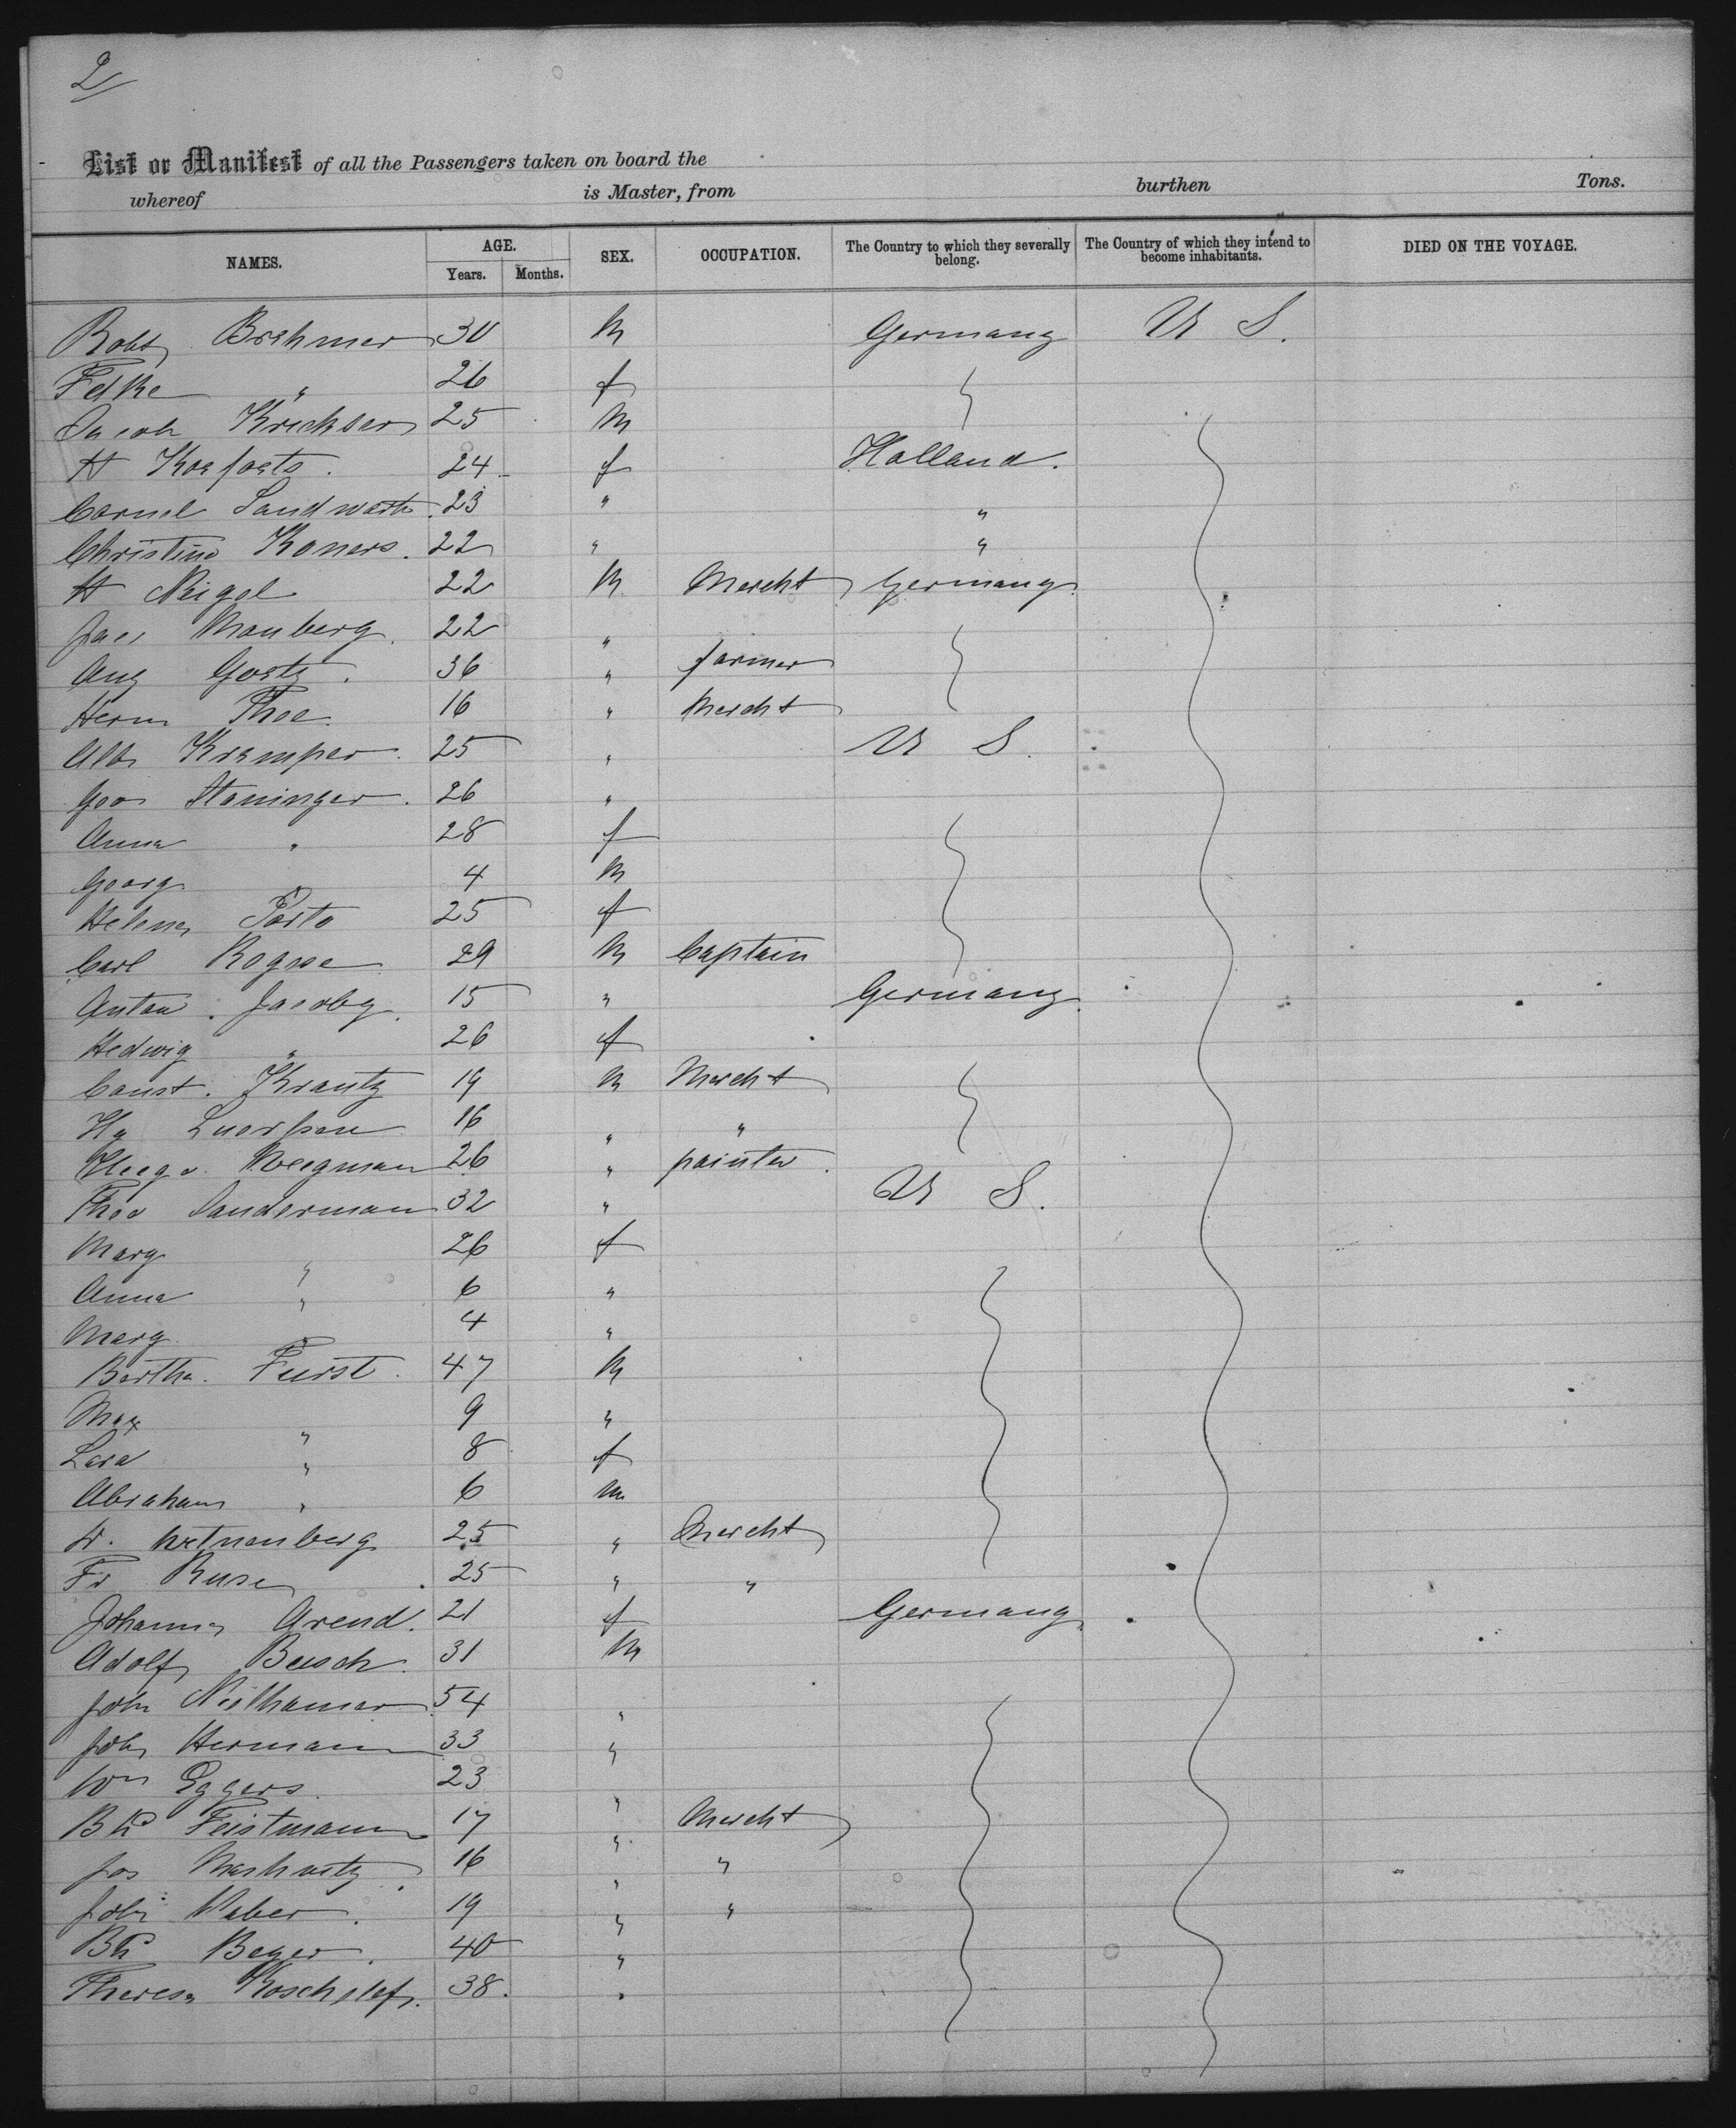 2
List or Manifest of all the Passengers taken on board the
whereof is Master, from burthen Tons.
NAMES. AGE. Years. Months. SEX. OCCUPATION. The Country to which they severally belong. The Country of which they intend to become inhabitants. DIED ON THE VOYAGE.
Robt Brahmer 30 M Germany U S.
Felke " 26 f
Jacob 25 M
H 24 f Holland.
Cornel Landwarts 23 " "
Christine Koners. 22 " "
H Neigel 22 M Mercht Germany
Mauberg. 22 "
Aug Goetz. 36 " farmer
Herm Thee. 16 " Mercht
Alb Kramper. 25 " U S.
Geo Staninger. 26 "
Anna " 28 f
Georg " 4 M
Helena Porto 25 f
Carl Rogge 29 M Captain
Anton. Jacoby. 15 " Germany.
Hedwig " 26 f
Const. Krantz 19 M Mercht
Hy 16 " "
Wegman 26 " painter.
Theo Sanderman 32 " U S.
Marg " 26 f
Anna " 6 "
Marg " 4 "
Bertha. Furst. 47 M
Max " 9 "
Lara " 8 f
Abraham " 6 m
25 " Mercht
Fr Ruse 25 " "
Johanna Arend. 21 f Germany
Adolf Busch. 31 M
John 54 "
John Hermann 33 "
Wm Eggers. 23 "
Bd Feistmann 17 " Mercht
Jos 16 " "
John Weber. 19 " "
Beyer. 40 "
Theresa 38. "